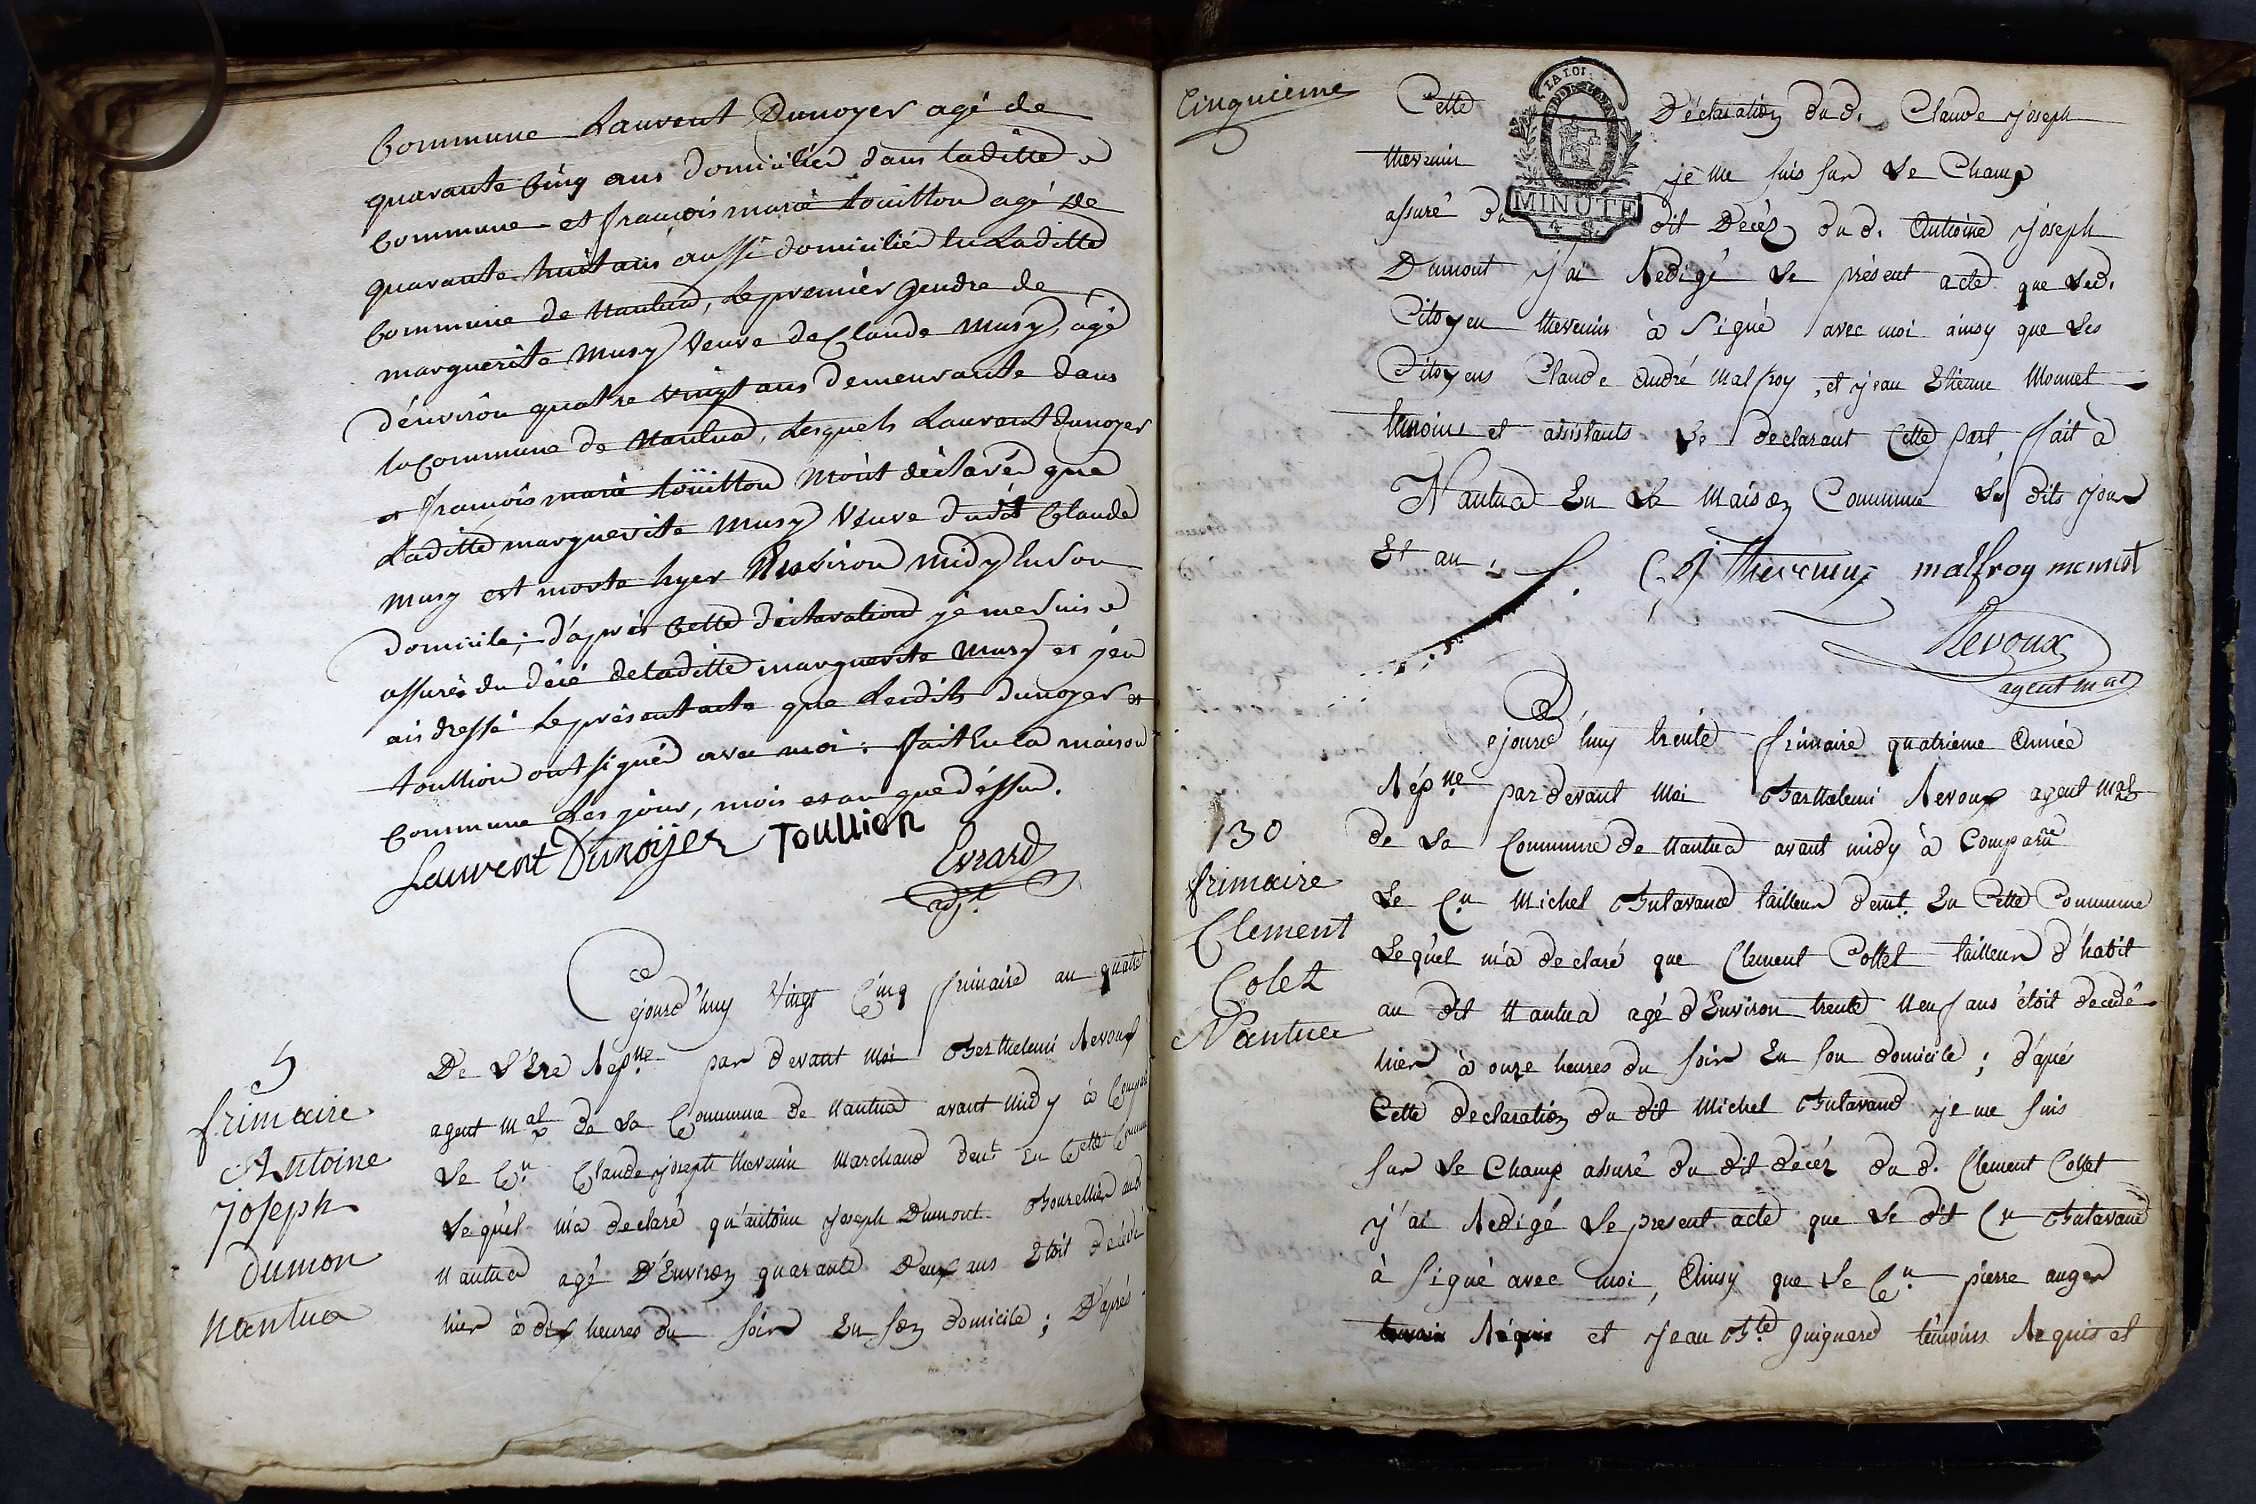 Commune Laurent Dunoyer agé de
quarante Cinq ans domicilié dans laditte
Commune et françois marie touillon agé de
quarante huit ans aussi domicilié en Laditte
Commune de Nantua, Le premier gendre de
marguerite Musy veuve de Claude Musy, agé
d'environ quatre vingt ans demeurante dans
la Commune de Nantua, Lesquels Laurent dunoyer
et françois marie toüillon m'ont déclaré que
Laditte marguerite Musy Veuve dudit Claude
Musy est morte hyer Environ midy En son
domicile; d'après Cette déclaration je me suis
assuré du décé de laditte marguerite Musy et j'en
ais dressé Le présent acte que Lesdits dunoyer et
toullion ont signé avec moi: fait En la maison
Commune Les jour, mois et an que déssus.
Laurent Dunoijer Toullion
Evrard
adjt
5
frimaire
Antoine
joseph
dumon
Nantua
Cejourd'huy Vingt Cinq frimaire an quatre
De L'Ere Repne par devant Moi Barthelemi Revoux
agent Mal de La Commune de Nantua avant Midy à Compar
Le Cn Claude joseph thevenin Marchand demt En Cette Commu
Lequel m'a declaré qu'antoine joseph Dumont Bourellier aud
Nantua agé D'Environ quarante Deux ans Etoit décédé
hier à dix heures du soir En son domicile; D'après
Cinquieme
LA LOI
MINUTE
Cette Déclaration du d. Claude joseph
thevenin je me suis sur Le Champ
assuré du dit Decès du d. Antoine joseph
Dumont j'ai Redigé Le présent acte que Led.
Citoyen thevenin à Signé avec moi ainsy que Les
Citoyens Claude André Malfroy, et jean Etienne Monnet
temoins et assistants Le declarant Cette part fait à
Nantua En La Maison Commune Les dits jour
Et an.
C J Thevenin malfroy monnet
Revoux
agent mal
130
frimaire
Clement
Colet
Nantua
Cejourd'huy trente frimaire quatrieme Année
Répne par devant Moi Barthelemi Revoux agent Mal
de La Commune de Nantua avant midy à Comparu
Le Cn Michel Butavand tailleur demt En Cette Commune
Lequel m'a declaré que Clement Collet tailleur d'habit
au dit Nantua agé d'Environ trente Neuf ans étoit decedé
hier à onze heures du soir En son domicile; d'apres
Cette declaration du dit Michel Butavand je me suis
sur Le Champ assuré du dit decèz du d. Clement Collet
j'ai Redigé Le present acte que Le dit Cn Butavand
à signé avec moi, Ainsy que Le Cn pierre auger
temoin Requis et jean Bte Guignard témoins Requis et